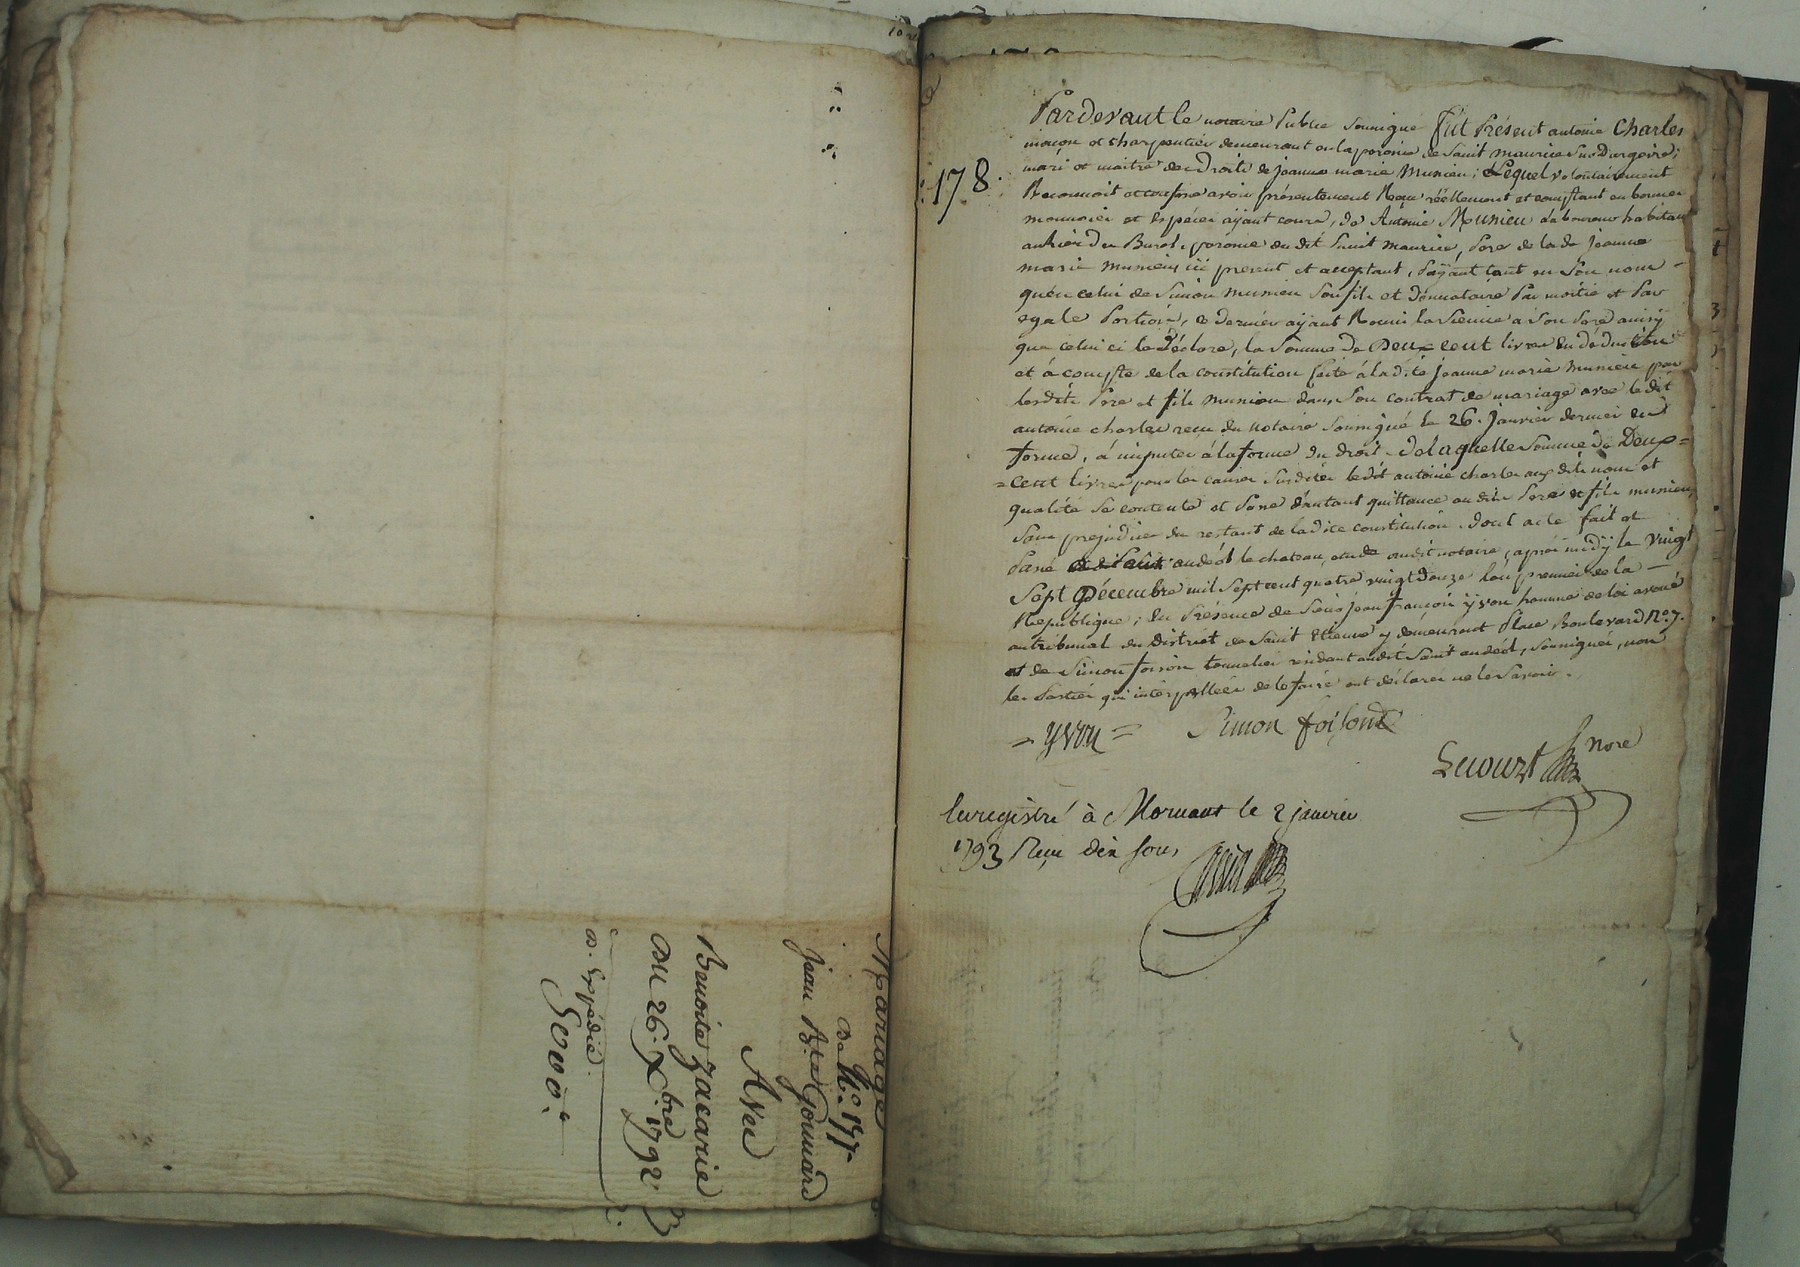 Mariage
N.o 177
De
jean B.te Goumard
Avec
Benoite Zacarie
Du 26. X.bre 1792
D. Expédié.
178
Pardevant le notaire Public Soussigné fut Présent antoine Charles
maçon et charpentier demeurant en la paroisse de Saint maurice Sur Dargoire;
mari et maitre des Droits de jeanne marie Munieu; Lequel volontairement
Reconnoit et confesse avoir présentement Reçu réellement et comptant en bonnes
monnoies et Espèces ayant cours, de Antoine Munieu laboureur habitant
au lieu du Burel, paroisse du dit Saint Maurice, Pere de la de jeanne
marie munieu, ici present et acceptant, Payant tant en Son nom
qu'en celui de Simon munieu Son fils et Donnataire Par moitié et Par
egale Portion, ce dernier ayant Remis la Sienne a Son Pere ainsy
que celui ci le Déclare, la Somme de Deux cent livres En déduction
et à compte de la constitution faite à la dite Jeanne marie munieu par
lesdits Pere et fils munieu dans Son contrat de mariage avec ledit
antoine charles reçu du notaire Soussigné le 26. Janvier dernier En
forme, à imputer à la forme du droit. De laquelle Somme de Deux=
=cent livres pour les causes Susdites ledit antoine charles aux dits nom et
qualité Se contente et Passe d'autant quittance audits Pere et fils munieu,
Sans prejudice du restant de la Dite constitution. Dont acte fait et
Passé andéol le chateau, etude dudit notaire, après midy le vingt
Sept Décembre mil Sept cent quatre vingt douze l'an premier de la
Republique; En Présence de Sieur jean françois yvon homme de loi avoué
au tribunal du District de Saint Etienne y demeurant Place Boulevard N.o 7.
et de Simon foison tonnelier résidant audit Saint andéol, Soussignés, non
les Parties qui interpellées de le faire ont déclarer ne le Savoir.
= yvon = Simon foison
Lecourt Nore
Enregistré à Mornant le 2 janvier
1793 Reçu dix sous